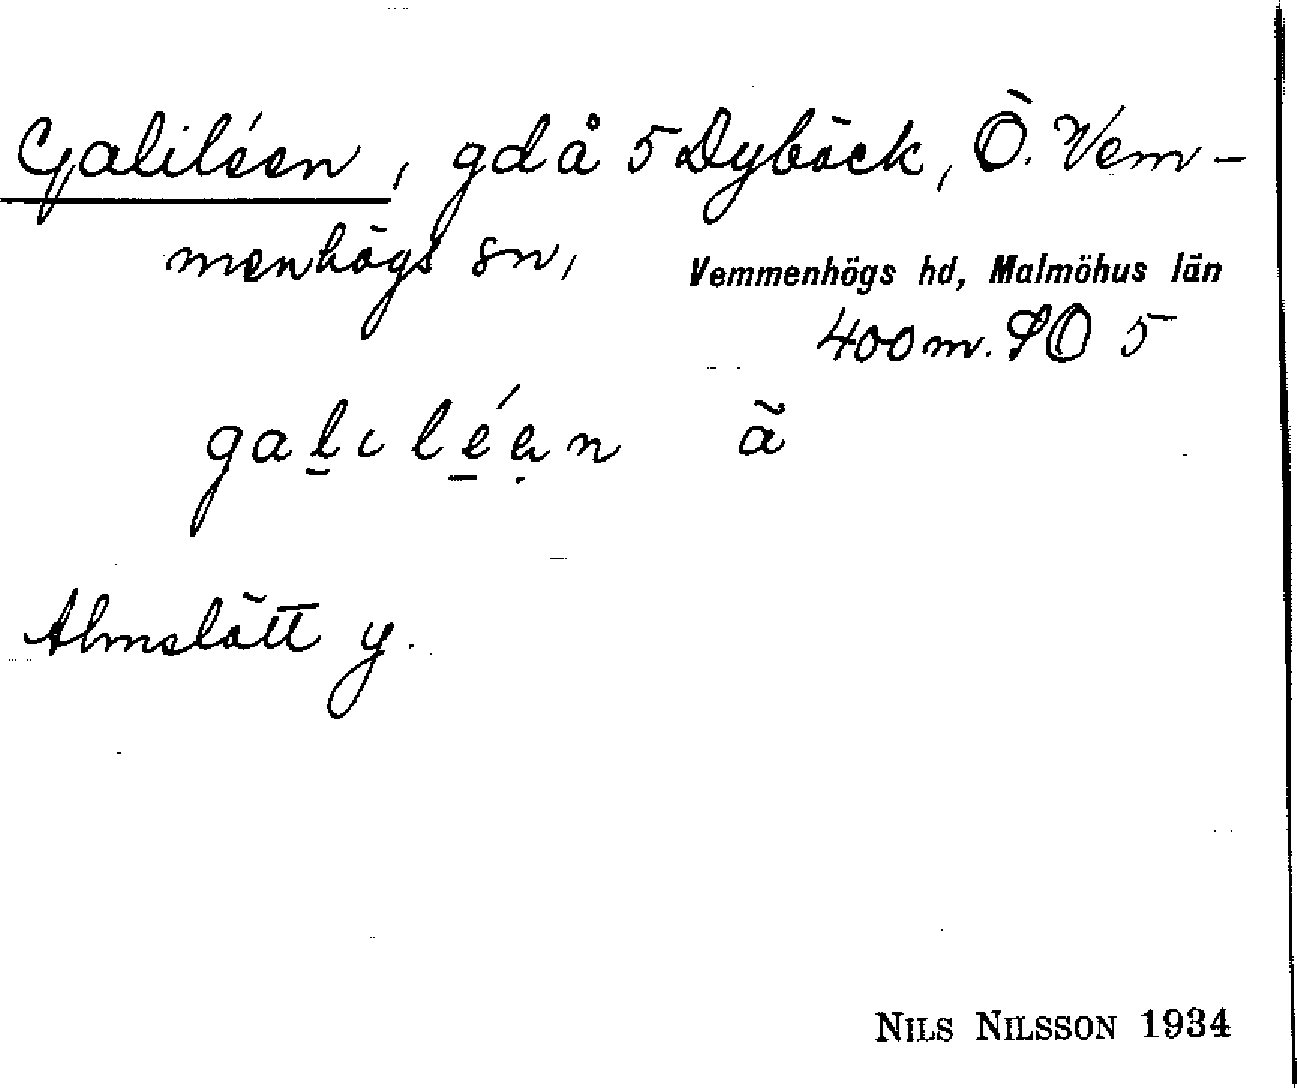 Galiléen, gd å 5 Dybäck, Ö. Vem-
menhögs sn, Vemmenhögs hd, Malmöhus län
400 m. SO 5
galiléen ã
Almslätt y.
NILS NILSSON 1934